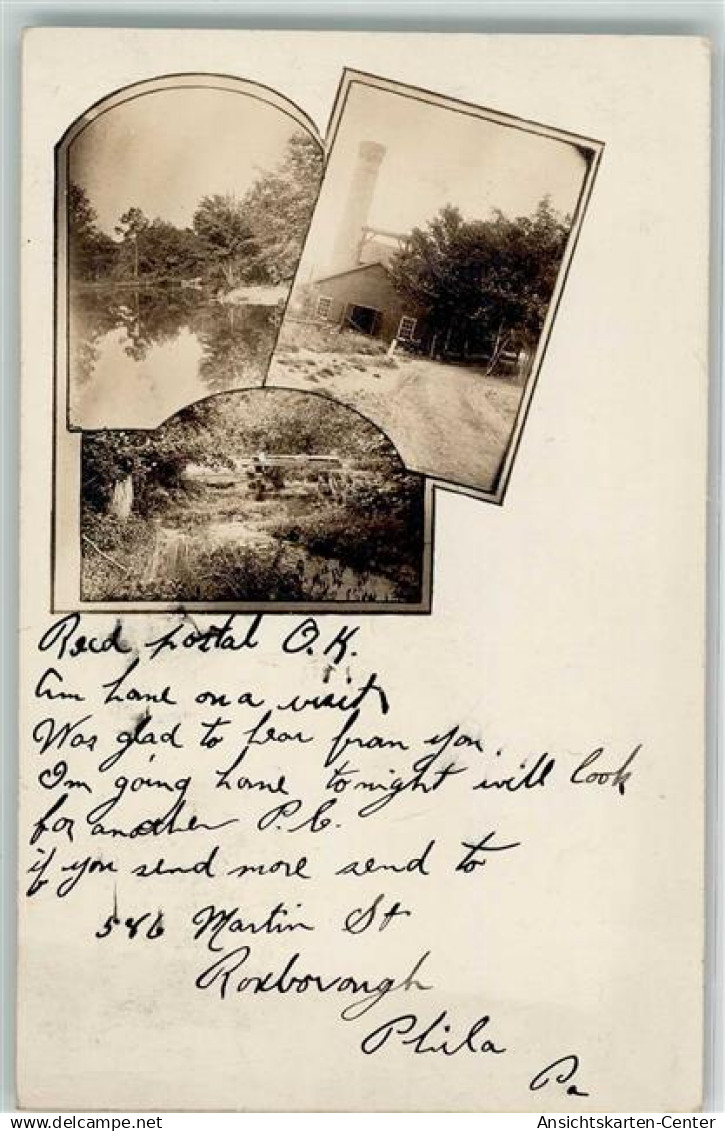 Recd postal O.K.
Am home on a visit
Was glad to hear from you.
I'm going home tonight will look
for another P.C.
if you send more send to
586 Martin St
Roxborough
Phila
Pa
oldthing
Ansichtskarten-Center